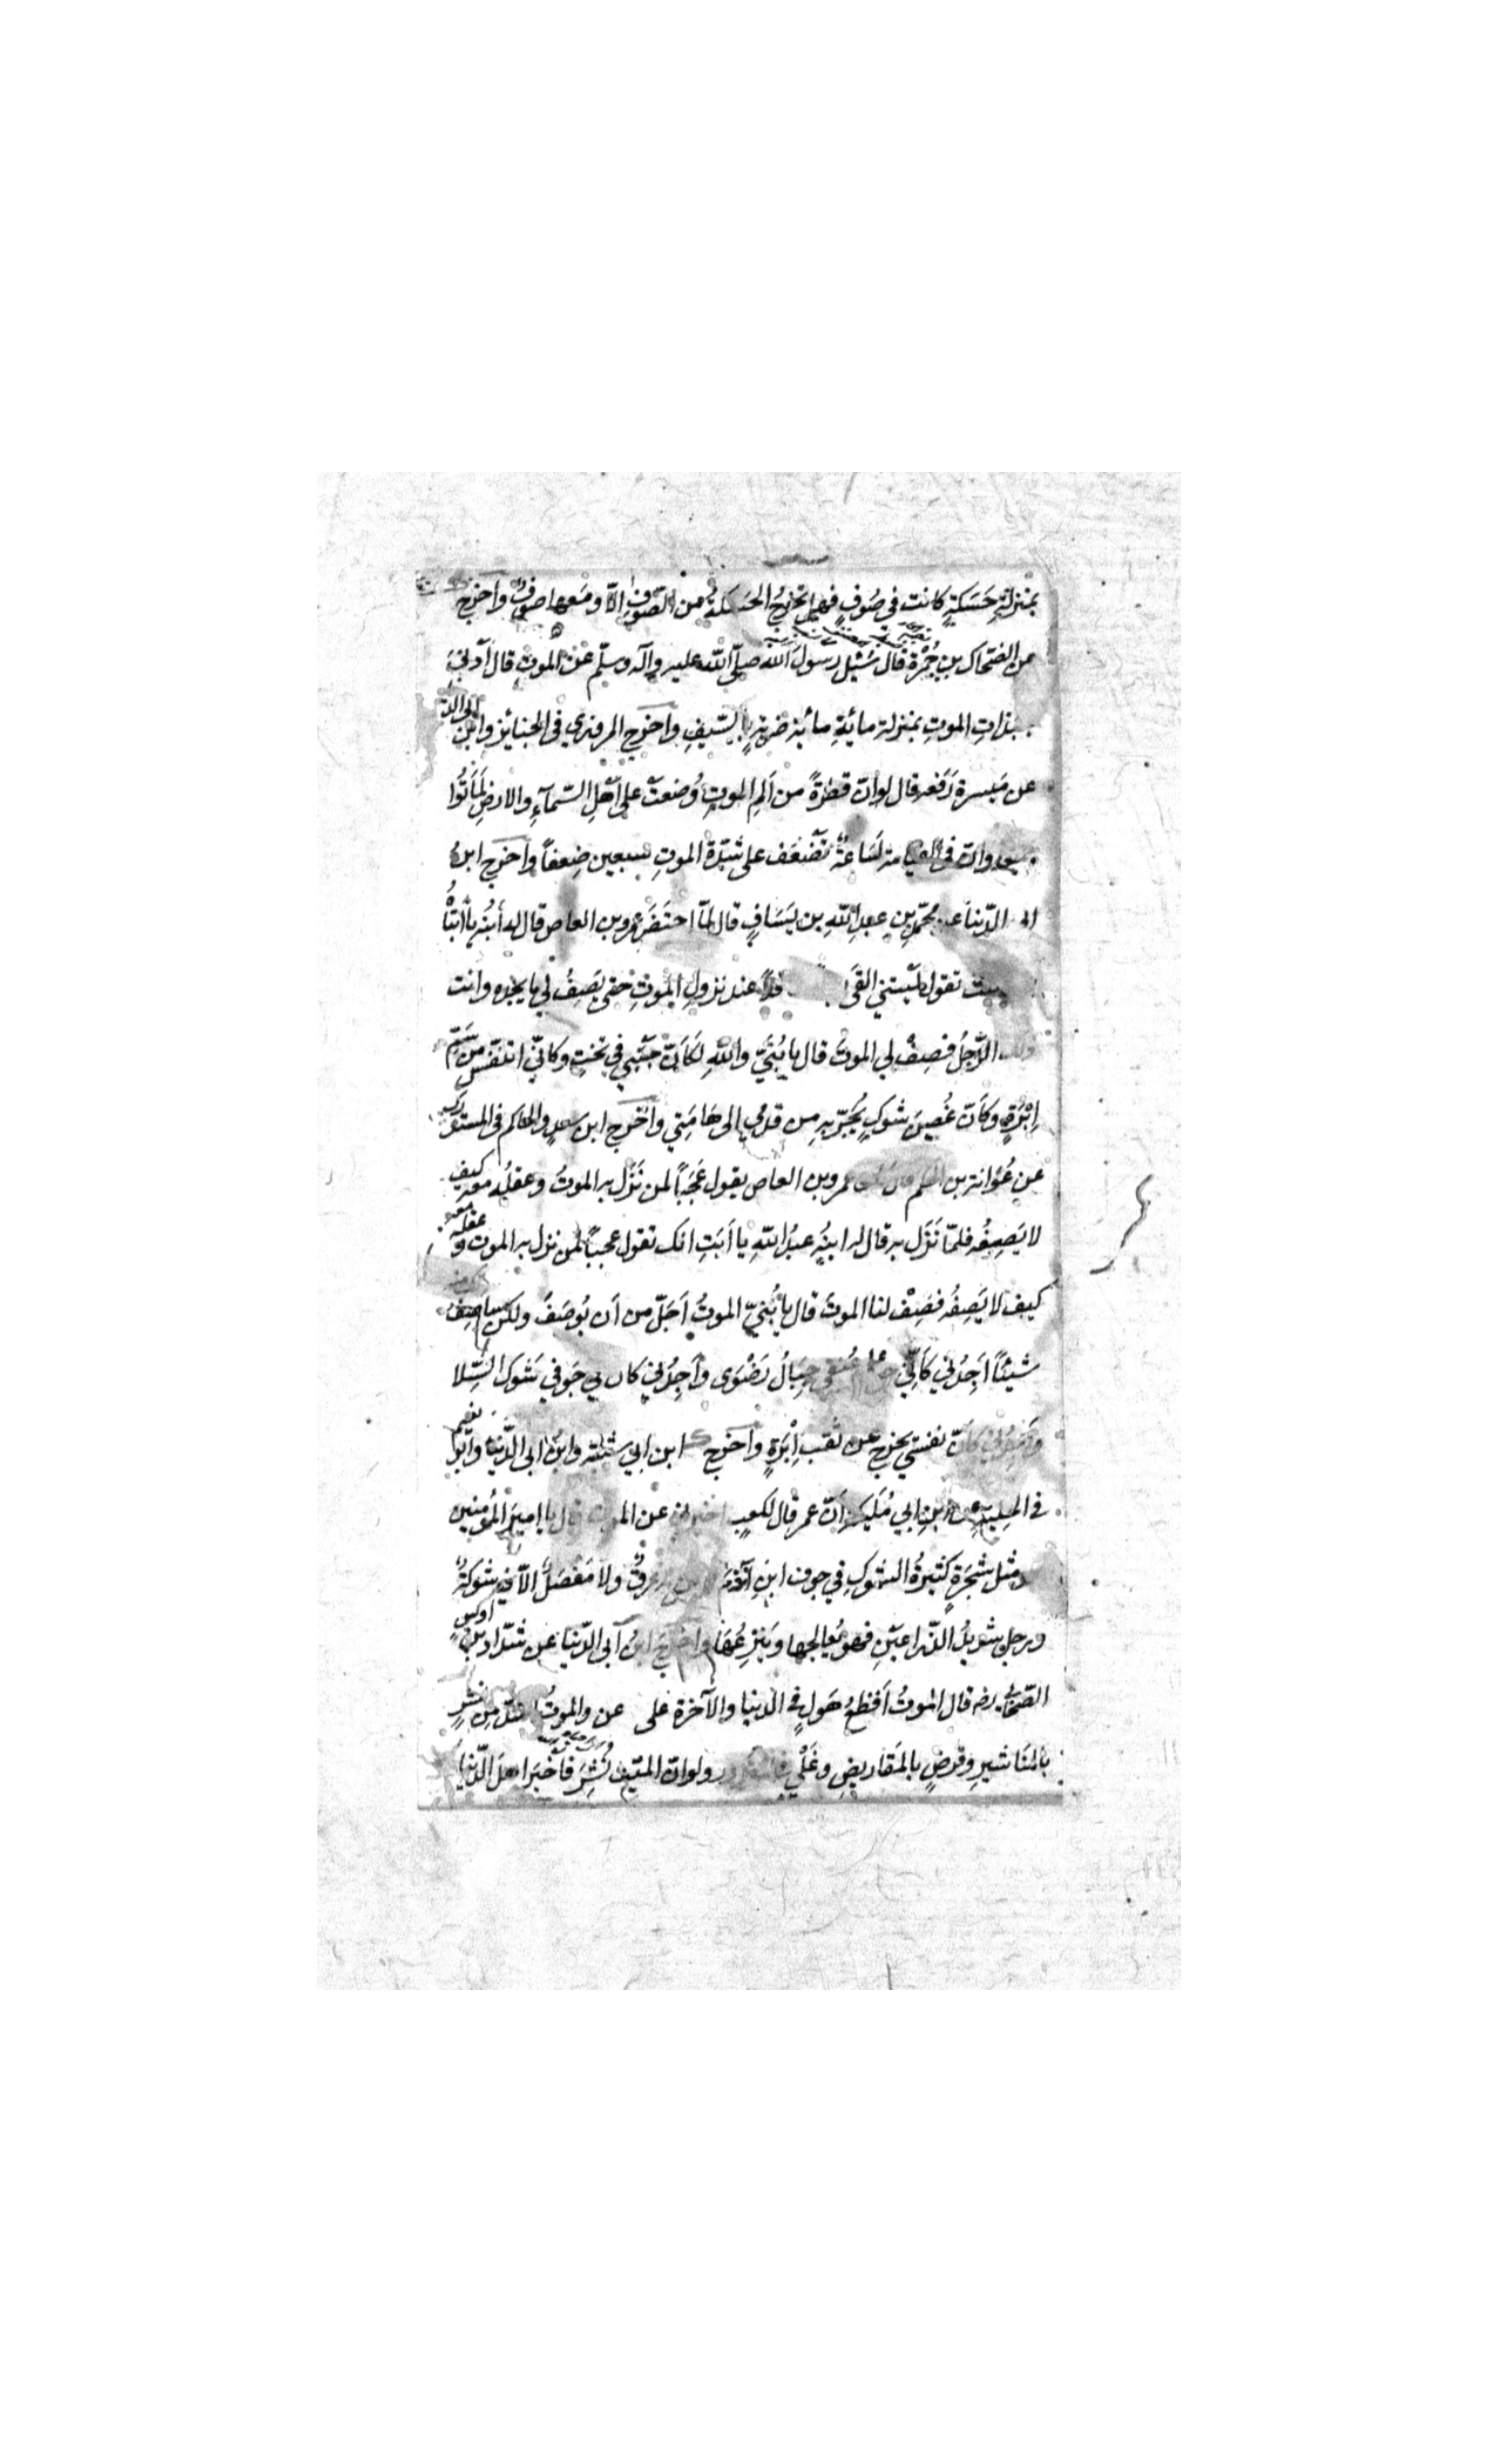 بمنزلة حَسَكةٍ كانت في صُوفٍ فهل تخرجُ الحَسَكةُ من الصّوفِ اِلّا ومَعها صوفٌ واَخرج
عن الضحّاك بن حُمْرة قال سُئِل رسولَ الله صلّى الله عليه وآله وسلّم عن الموت قال اَدنى
جبذاتِ الموتِ بمنزلة مائةِ مائة ضربةٍ بالسّيفِ واخرج المروزي في الجنائز وابن ابي الدنيا
عن مَيسرة رَفعه قال لو انّ قطرةً من اَلَمِ الموتِ وُضعت على اَهلِ السّمآءِ والارضِ لَمَاتُوا
جميعا وانّ في القيامة لَسَاعةً تَضعَف على شدّة الموتِ سبعين ضِعفاً واَخرج ابنُ
ابي الدّنيا عن محمّد بن عبدِ اللهِ بن يَسَافٍ قال لمّا احتَضَر عمرو بن العاص قال له أبنُه يا أبتاهُ
تقول لَيتني القَى عند نزولِ الموتِ حتى يَصِفُ لي ما يجده وانت
ذلك الرّجلُ فصِفْ لي الموت قال يا بُنَيَّ واللهِ لَكَانّ جَنْبِي في تختٍ وكانّي اتنفّس من سَمِّ
اِبْرَةٍ وكَانّ غُصنَ شوكٍ يُجَرّ به مِن قدمي الى هَامَتِي واَخرج ابن سعدٍ والحاكم في المستدرك
عن عُوَانة بن الحكم قال كان عمرو بن العاص يقول عَجَباً لمن نَزَل به الموتُ وعقلُه معه كيف
لا يَصِفُه فلمّا نَزَل به قال له ابنُه عبدُ اللهِ يا اَبَتِ انك تقول عجباً لمن نزل به الموت وعقله معه
كيف لا يَصِفُه فصِفْ لنا الموتَ قال يا بُنيّ الموتُ اَجَلّ من اَن يُوصَفَ ولكن ساصِفُ
شيئاً اَجِدُني كَانّي على عُنقي جِبَالُ رَضْوَى واَجِدُني كان في جَوفي شَوك السّلا
واَجِدُني كَانّ نفسي يخرج عن ثقب اِبْرَةٍ واَخرج ابن ابي شيبة وابن ابي الدّنيا وابو نعيم
في الحِليةِ عن ابنِ ابي مُلَيكة اَنّ عمر قال لكعبٍ اخبرني عن الموت قال يا اميرَ المؤمنين
مثل شجَرَةٍ كثيرةُ الشوكِ في جوف ابنِ آدَم عرقٌ ولا مَفصَلٌ الّا فيه شوكةٌ
ورجلٍ شديدُ الذّراعَينِ فهو يُعالجها ويَنزِعُهَا واَخرج ابنُ اَبي الدّنيا عن شدّاد بن اوس
الصّحابي رضه قال الموتُ اَفظعُ هَولٍ في الدنيا والآخرة على والموتُ اَشدّ مِن نشرٍ
بالمَنَاشيرِ وقرضٍ بالمَقاريضِ وغَلْيٍ ولو انّ الميّت نُشِرَ فاَخبَرَ اهلَ الدّنيا